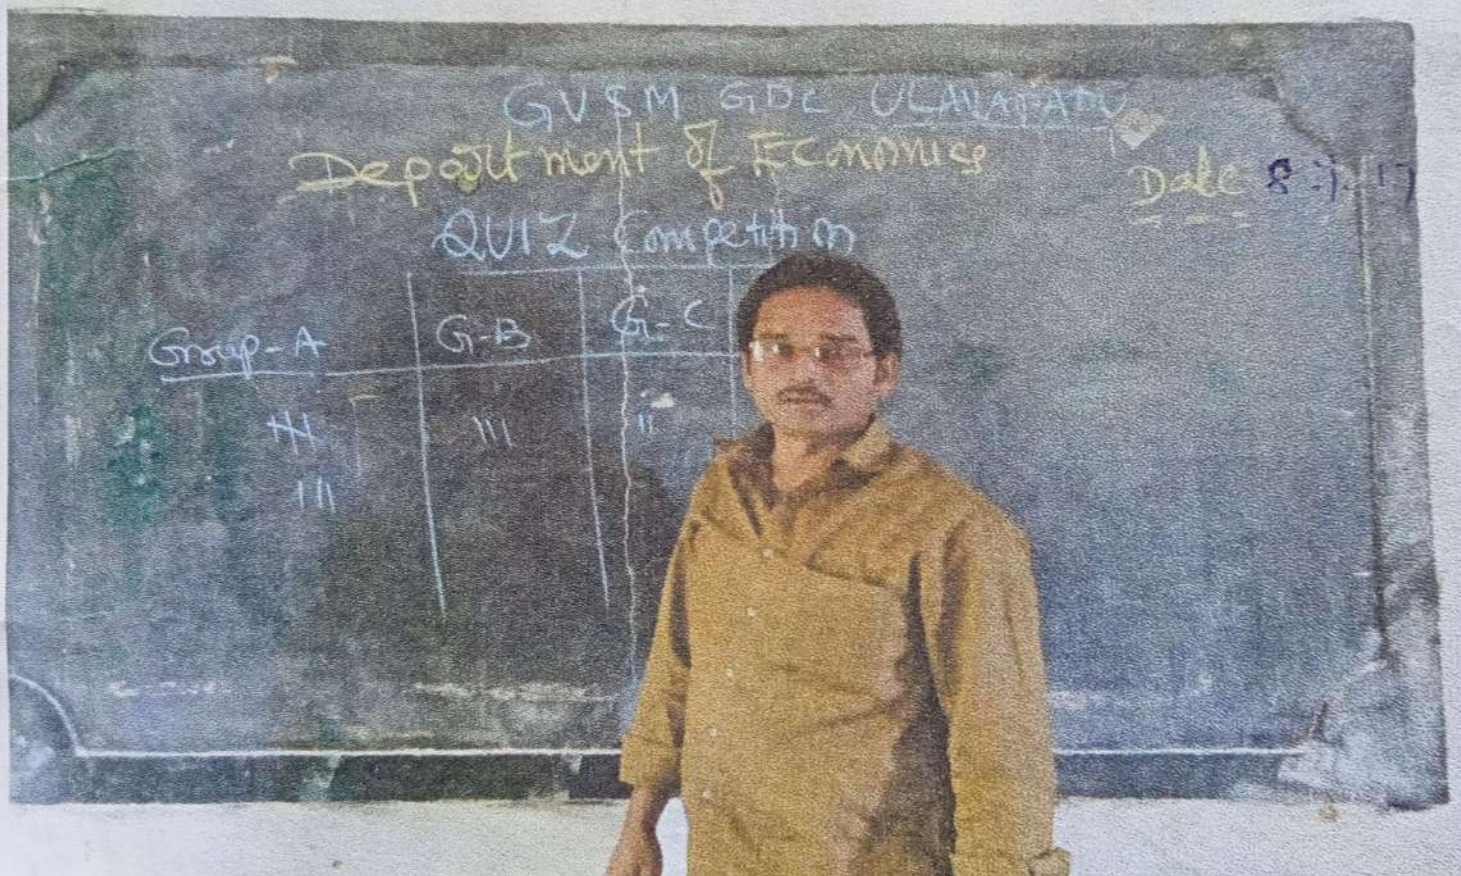 GVSM GDC ULAVAPADU
Department of Economics
Date 8
QUIZ Competition
Group-A G-B G-C